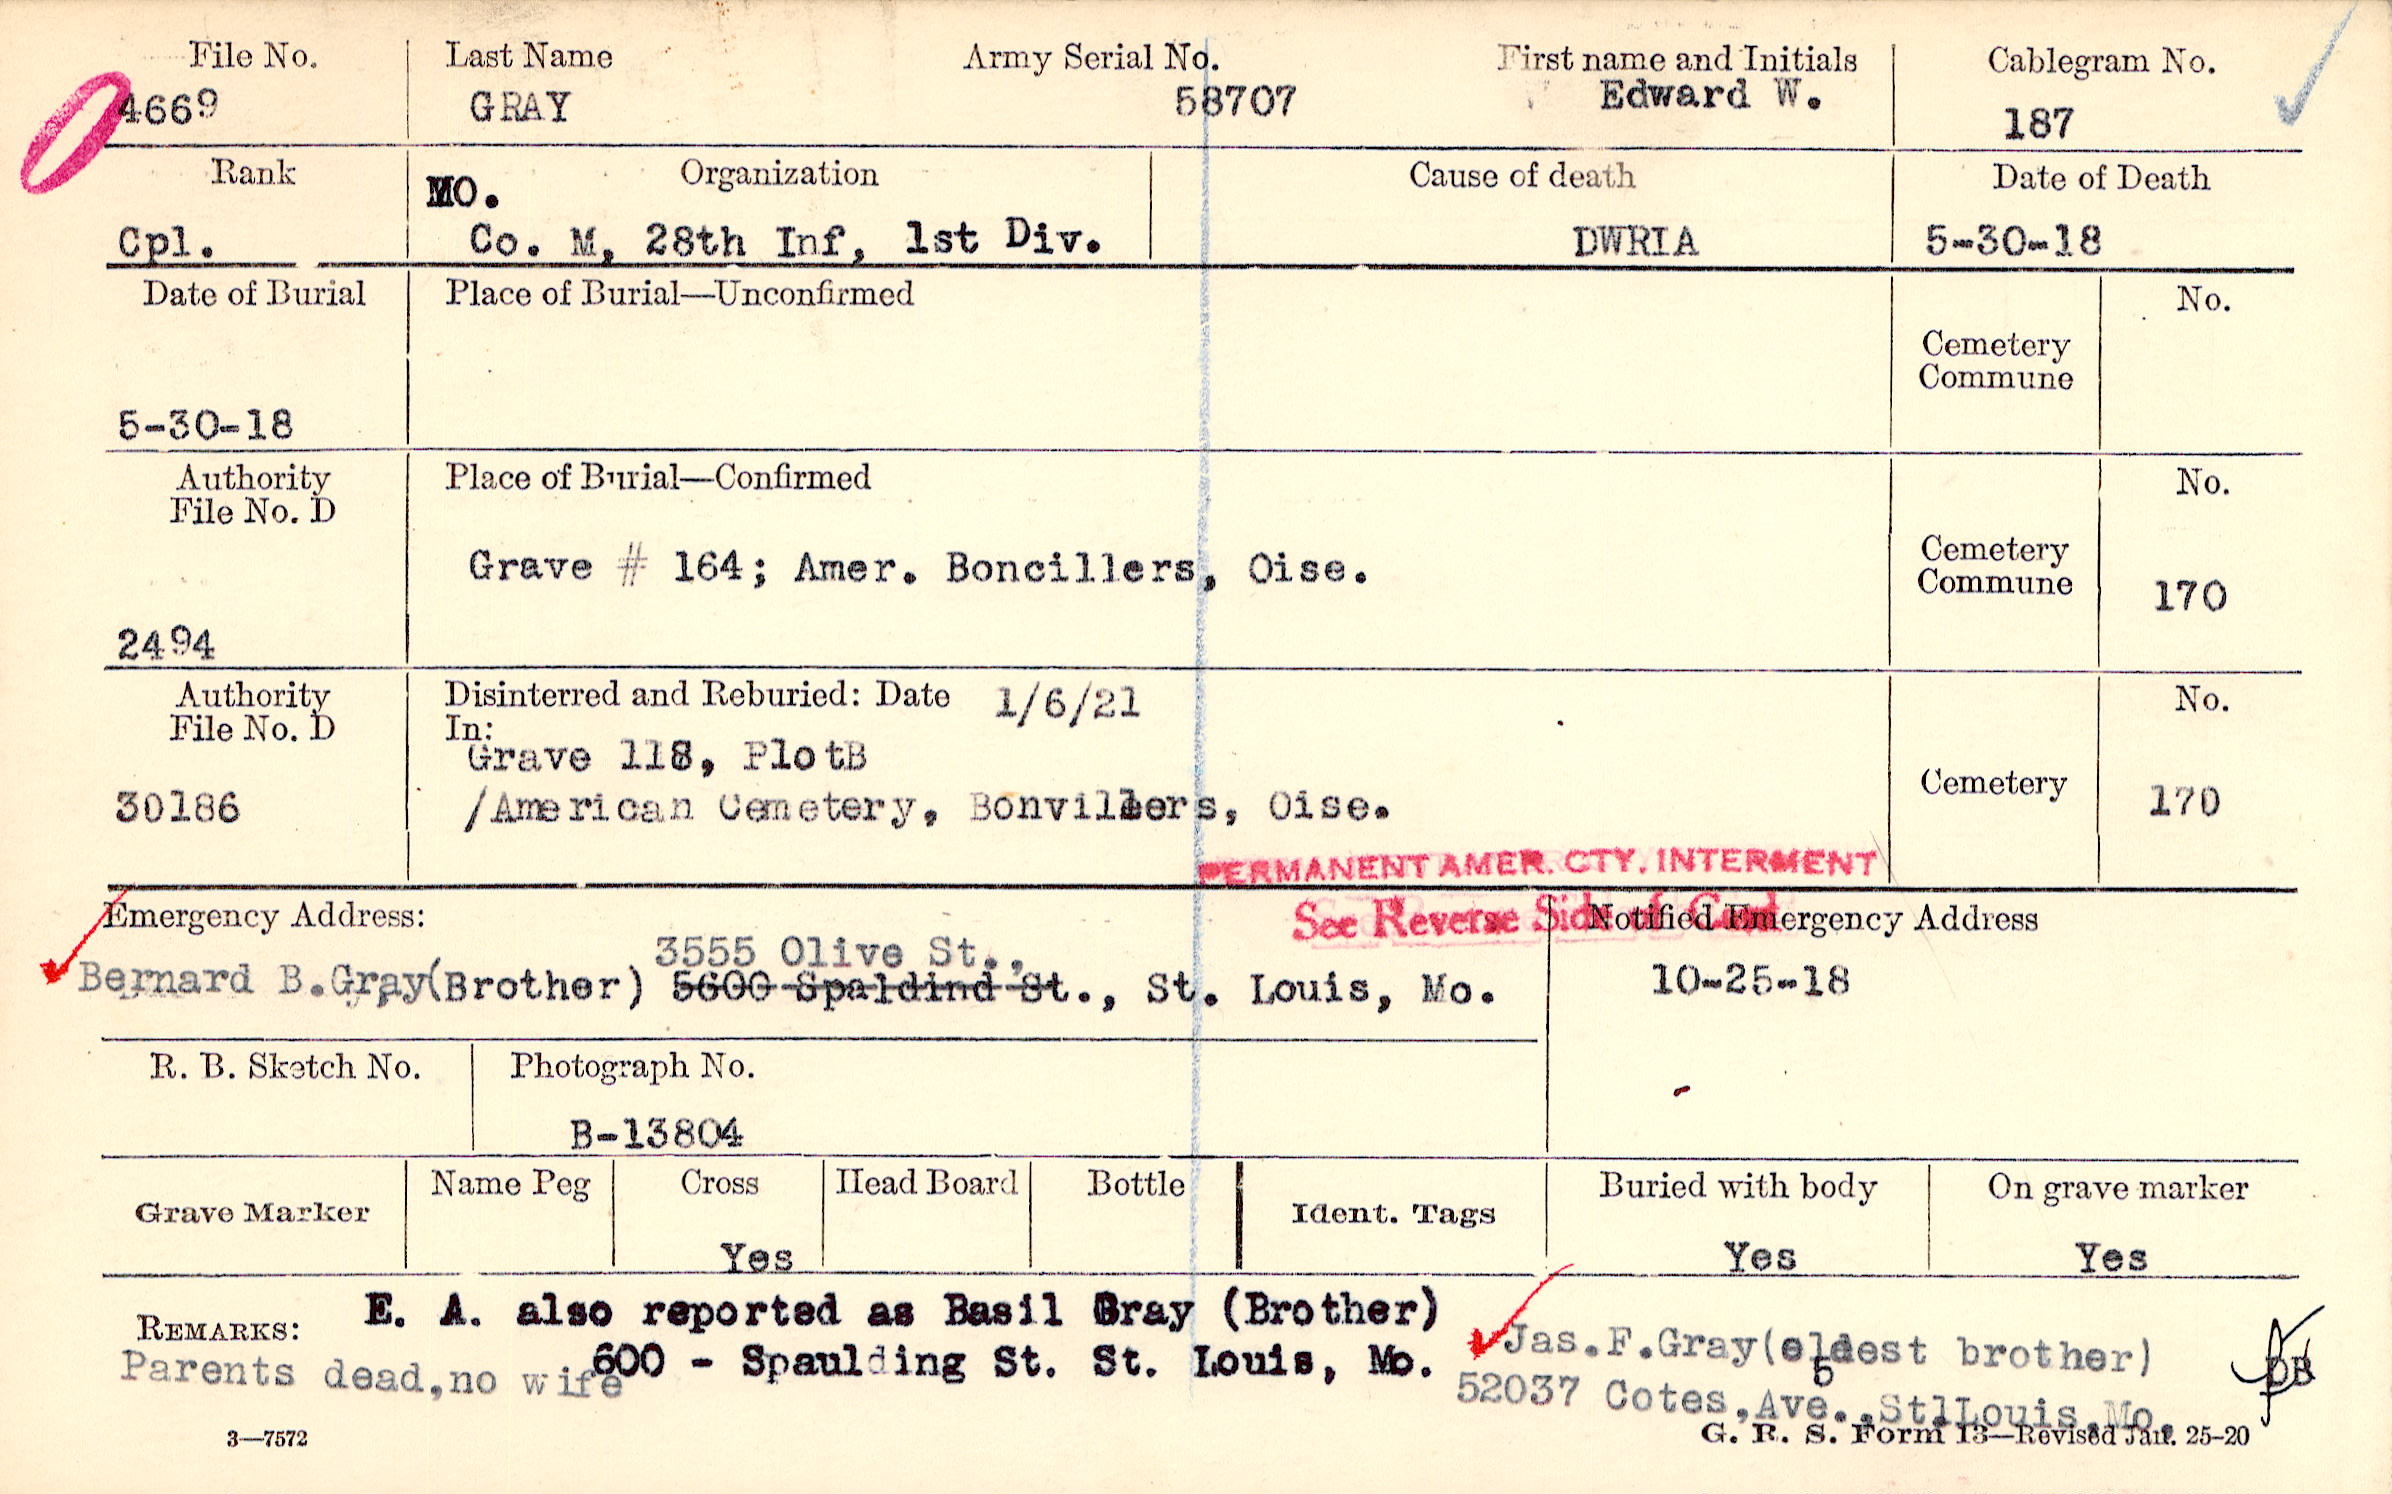 File No.
4669
Last Name
GRAY
Army Serial No.
58707
First name and Initials
Edward W.
Cablegram No.
187
Rank
Cpl.
Organization
MO.
Co. M, 28th Inf, 1st Div.
Cause of death
DWRIA
Date of Death
5-30-18
Date of Burial
5-30-18
Place of Burial—Unconfirmed
Cemetery
Commune
No.
Authority
File No. D
2494
Place of Burial—Confirmed
Grave # 164; Amer. Boncillers, Oise.
Cemetery
Commune
No.
170
Authority
File No. D
30186
Disinterred and Reburied: Date 1/6/21
In:
Grave 118, PlotB
/American Cemetery, Bonvillers, Oise.
Cemetery
No.
170
PERMANENT AMER. CTY. INTERMENT
See Reverse Side of Card
Emergency Address:
3555 Olive St.,
Bernard B.Gray(Brother) 5600 Spaldind St., St. Louis, Mo.
Notified Emergency Address
10-25-18
R. B. Sketch No.
Photograph No.
B-13804
Grave Marker
Name Peg
Cross
Yes
Head Board
Bottle
Ident. Tags
Buried with body
Yes
On grave marker
Yes
REMARKS:
E. A. also reported as Basil Gray (Brother)
600 - Spaulding St. St. Louis, Mo.
Parents dead,no wife
Jas.F.Gray(eldest brother)
5
52037 Cotes,Ave.,St.Louis,Mo.
DB
3—7572
G. R. S. Form 13—Revised Jan. 25-20